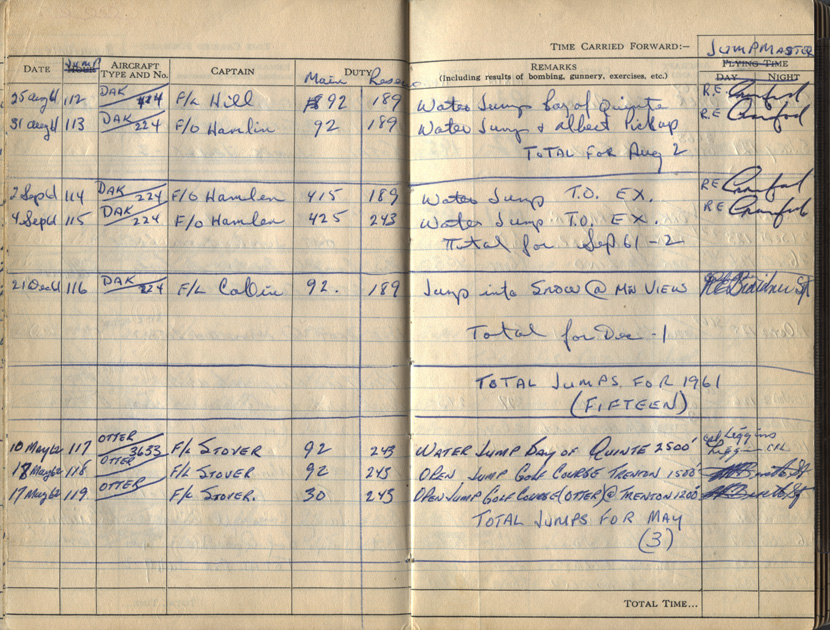 TIME CARRIED FORWARD:— JUMPMASTER
DATE JUMP HOUR AIRCRAFT TYPE AND No. CAPTAIN Main DUTY Reserve REMARKS (Including results of bombing, gunnery, exercises, etc.) FLYING TIME DAY NIGHT
25 Aug 61 112 DAK 424 F/L Hill 92 189 Water Jump Bay of Quinte R.E. Crawford
31 Aug 61 113 DAK 224 F/O Hamlin 92 189 Water Jump & Albert Pickup R.E. Crawford
TOTAL FOR Aug 2
2 Sept 61 114 DAK 224 F/O Hamlen 415 189 Water Jump T.O. EX. RE Crawford
4 Sept 61 115 DAK 224 F/O Hamlen 425 243 Water Jump T.O. EX. RE Crawford
Total for Sep 61 - 2
21 Dec 61 116 DAK 224 F/L Collin 92. 189 Jump into SNOW @ MN VIEW
Total for Dec - 1
TOTAL JUMPS FOR 1961
(FIFTEEN)
10 May 62 117 OTTER 3653 F/L STOVER 92 243 WATER JUMP BAY OF QUINTE 2500' Cpl Leggins
18 May 62 118 OTTER F/L STOVER 92 245 OPEN JUMP GOLF COURSE TRENTON 1500'
17 May 62 119 OTTER F/L STOVER. 30 245 OPEN JUMP GOLF COURSE (OTTER) @ TRENTON 1200'
TOTAL JUMPS FOR MAY
(3)
TOTAL TIME...